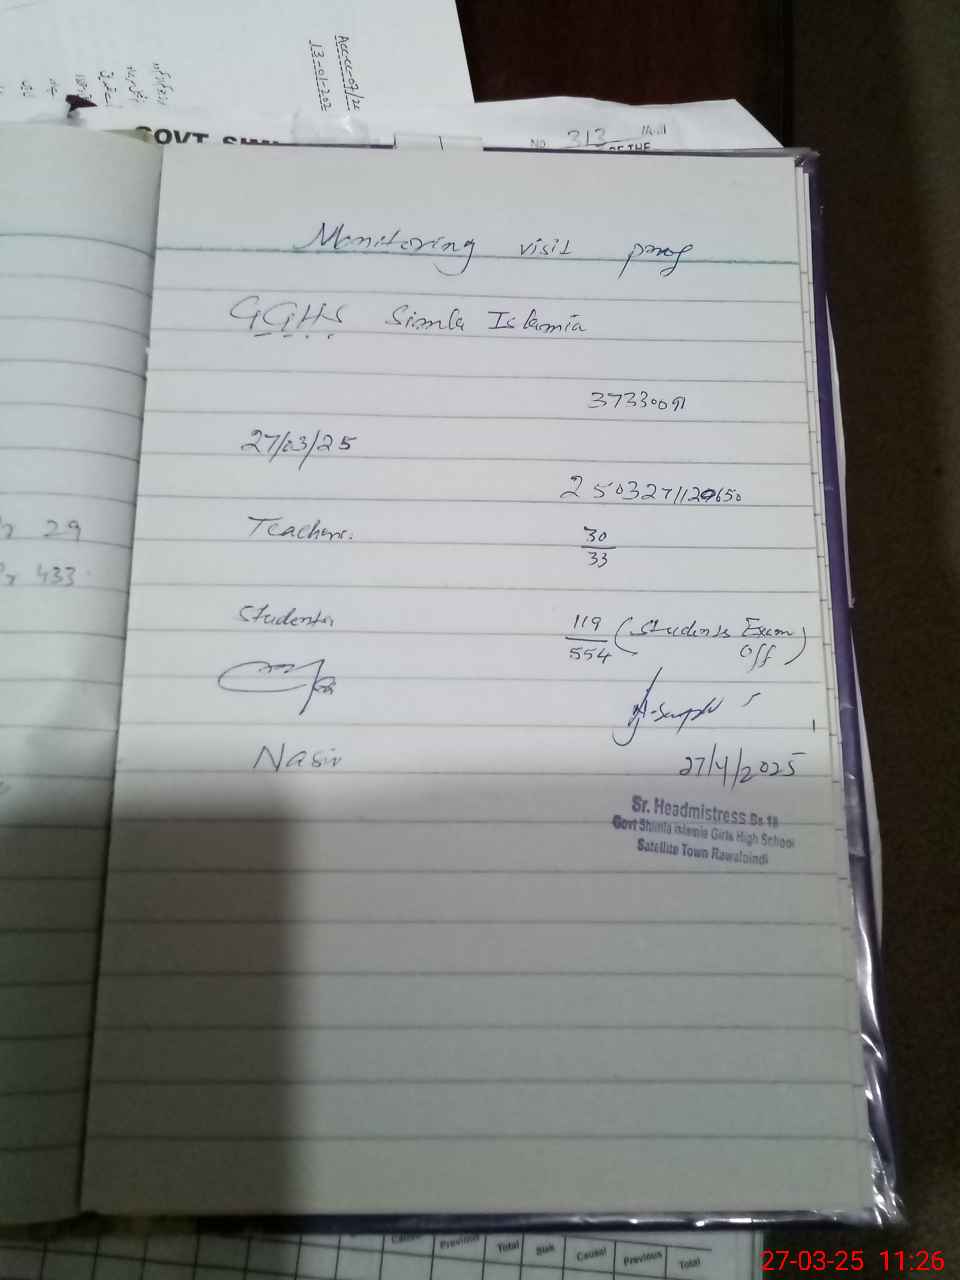 Acc-cc-07/2
13-01-202
GOVT SIM
No. 313
OF THE
Monitoring visit proof
GGHS Simla Islamia
37330091
27/03/25
250327112650
Teachers. 30/33
29
433
Students 119/554 (Students Exam Off)
Nasir
27/4/2025
Sr. Headmistress Bs 18
Govt Shimla Islamia Girls High School
Satellite Town Rawalpindi
Causel Previous Total Sick Causel Previous Total
27-03-25 11:26